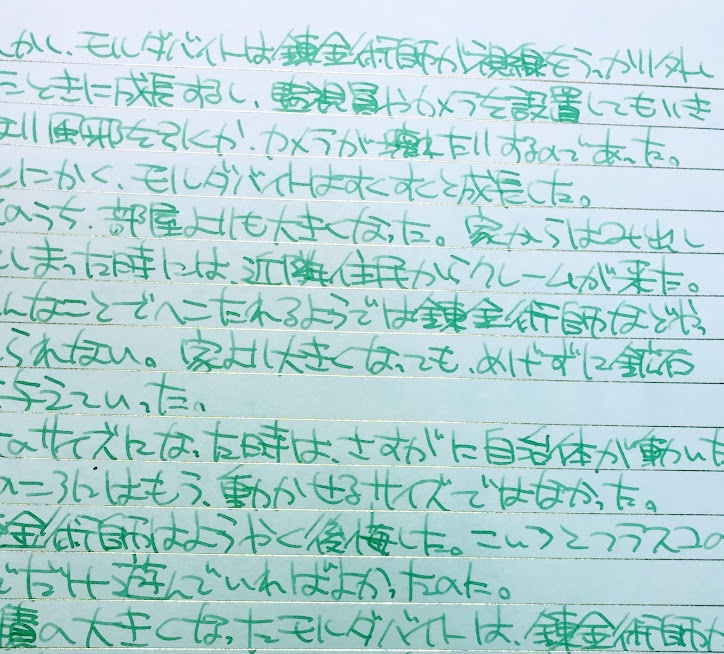 しかし、モルダバイトは錬金術師が視線をうっかり外し
たときに成長するし、監視員やカメラを設置してもいき
なり風邪を引くか、カメラが壊れたりするのであった。
とにかく、モルダバイトはすくすくと成長した。
そのうち、部屋よりも大きくなった。家からはみ出し
てしまった時には、近隣住民からクレームが来た。
んなことでへこたれるようでは錬金術師などやっ
られない。家より大きくなっても、めげずに鉱石
与えていった。
のサイズになった時は、さすがに自治体が動いた
のころにはもう、動かせるサイズではなかった。
金術師はようやく後悔した。こいつとフラスコの
でだけ遊んでいればよかったのだ。
の大きくなったモルダバイトは、錬金術師が